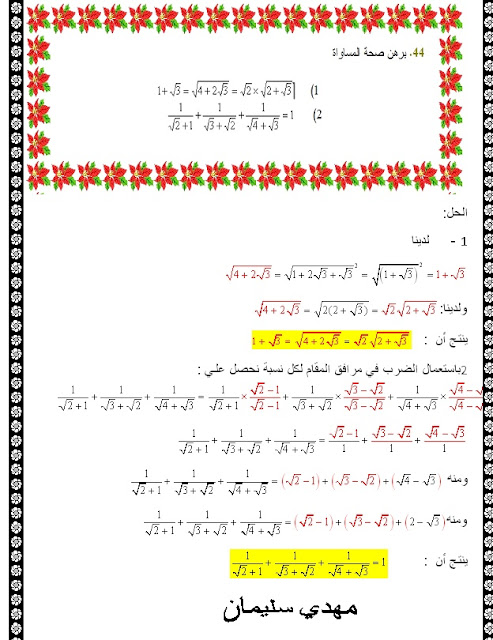 44. برهن صحة المساواة
1) 1+√3 = √(4+2√3) = √2×√(2+√3)
2) 1/(√2+1) + 1/(√3+√2) + 1/(√4+√3) = 1
الحل:
1 - لدينا
√(4+2√3) = √(1+2√3+√3²) = √((1+√3)²) = 1+√3
ولدينا: √(4+2√3) = √(2(2+√3)) = √2√(2+√3)
ينتج أن : 1+√3 = √(4+2√3) = √2√(2+√3)
2باستعمال الضرب في مرافق المقام لكل نسبة نحصل علي :
1/(√2+1) + 1/(√3+√2) + 1/(√4+√3) = 1/(√2+1) × (√2−1)/(√2−1) + 1/(√3+√2) × (√3−√2)/(√3−√2) + 1/(√4+√3) × (√4−)/(√4−)
1/(√2+1) + 1/(√3+√2) + 1/(√4+√3) = (√2−1)/1 + (√3−√2)/1 + (√4−√3)/1
ومنه 1/(√2+1) + 1/(√3+√2) + 1/(√4+√3) = (√2−1)+(√3−√2)+(√4−√3)
ومنه 1/(√2+1) + 1/(√3+√2) + 1/(√4+√3) = (√2−1)+(√3−√2)+(2−√3)
ينتج أن : 1/(√2+1) + 1/(√3+√2) + 1/(√4+√3) = 1
مهدي سليمان